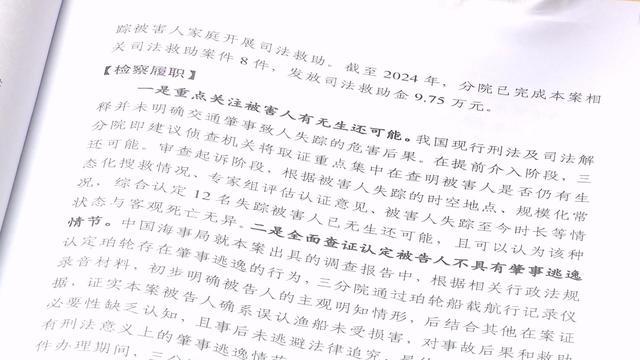 踪被害人家庭开展司法救助。截至 2024 年，分院已完成本案相
关司法救助案件 8 件，发放司法救助金 9.75 万元。
【检察履职】
一是重点关注被害人有无生还可能。我国现行刑法及司法解
释并未明确交通肇事致人失踪的危害后果。在提前介入阶段，三
分院即建议侦查机关将取证重点集中在查明被害人是否仍有生
还可能。审查起诉阶段，根据被害人失踪的时空地点、规模化常
态化搜救情况、专家组评估认证意见、被害人失踪至今时长等情
况，综合认定 12 名失踪被害人已无生还可能，且可以认为该种
状态与客观死亡无异。二是全面查证认定被告人不具有肇事逃逸
情节。中国海事局就本案出具的调查报告中，根据相关行政法规
认定珀轮存在肇事逃逸的行为，三分院通过珀轮船载航行记录仪
录音材料，初步明确被告人的主观明知情形，后结合其他在案证
据，证实本案被告人确系误认渔船未受损害，对事故后果和救助
必要性缺乏认知，且事后未逃避法律追究，是
有刑法意义上的肇事逃逸情节
件办理期间，三分